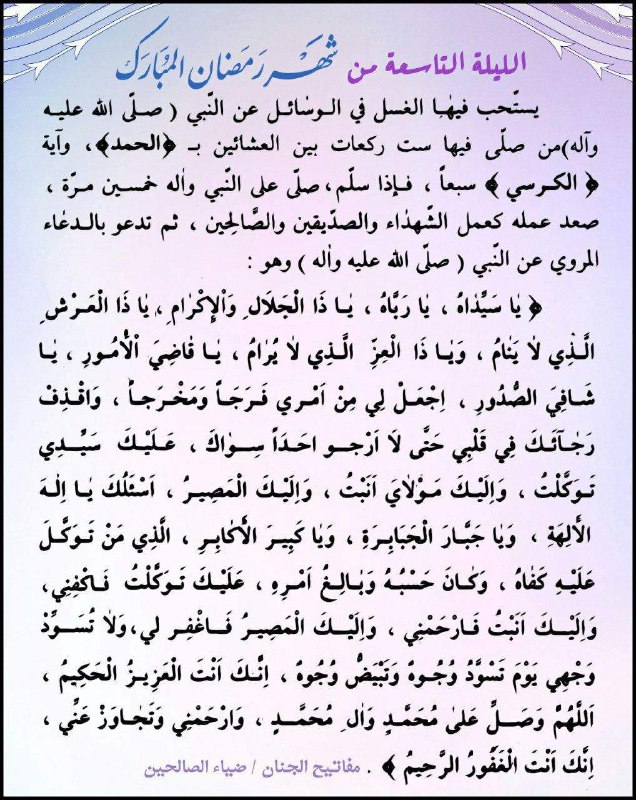 الليلة التاسعة من شهر رمضان المبارك
يستّحب فيها الغسل في الوسائل عن النّبي ( صلّى الله عليه
وآله)من صلّى فيها ست ركعات بين العشائين بـ ﴿الحمد﴾، وآية
﴿ الكرسي ﴾ سبعاً ، فإذا سلّم، صلّى على النّبي واله خمسين مرّة ،
صعد عمله كعمل الشّهداء والصدّيقين والصَّالِحين ، ثم تدعو بالدعاء
المروي عن النّبي ( صلّى الله عليه واله ) وهو :
﴿ يٰا سَيِّدٰاهُ ، يٰا رَبّٰاهُ ، يٰا ذَا الْجَلٰالِ وَاْلإِكْرٰامِ ، يٰا ذَا الْعَرْشِ
الَّذِي لٰا يَنٰامُ ، وَيٰا ذَا الْعِزِّ الَّذِي لٰا يُرٰامُ ، يٰا قٰاضِيَ اْلأُمُورِ ، يٰا
شٰافِيَ الصُّدُورِ ، اِجْعَلْ لِي مِنْ اَمْرِي فَرَجَاً وَمَخْرَجاً ، وَاقْذِفْ
رَجٰآئَكَ فِي قَلْبِي حَتَّى لٰا اَرْجو احَدَاً سِوٰاكَ ، عَلَيْكَ سَيِّدِي
تَوَكَّلْتُ ، وَاِلَيْكَ مَوْلٰايَ اَنَبْتُ ، وَاِلَيْكَ الْمَصِيرُ ، اَسْئَلُكَ يٰا اِلٰهَ
الْآلِهَةِ ، وَيٰا جَبَّارَ الْجَبٰابِرَةِ ، وَيٰا كَبِيرَ الْأَكٰابِرِ ، الَّذِي مَنْ تَوَكَّلَ
عَلَيْهِ كَفٰاهُ ، وَكٰانَ حَسْبُهُ وَبٰالِغُ اَمْرِهِ ، عَلَيْكَ تَوَكَّلْتُ فَاكْفِنِي،
وَاِلَيْكَ اَنَبْتُ فَارْحَمْنِي ، وَاِلَيْكَ الْمَصِيرُ فَاغْفِر لي، وَلٰا تُسَوِّدْ
وَجْهِي يَوْمَ تَسْوَدُّ وُجُوهٌ وَتَبْيَضُّ وُجُوهٌ ، اِنَّكَ اَنْتَ الْعَزِيزُ الْحَكِيمُ ،
اَللَّهُمَّ وَصَلِّ عَلىٰ مُحَمَّدٍ وَالِ مُحَمَّدٍ ، وَارْحَمْنِي وَتَجٰاوَزْ عَنِّي ،
اِنَّكَ اَنْتَ الْغَفُورُ الرَّحِيمُ ﴾ . مفاتيح الجنان / ضياء الصالحين